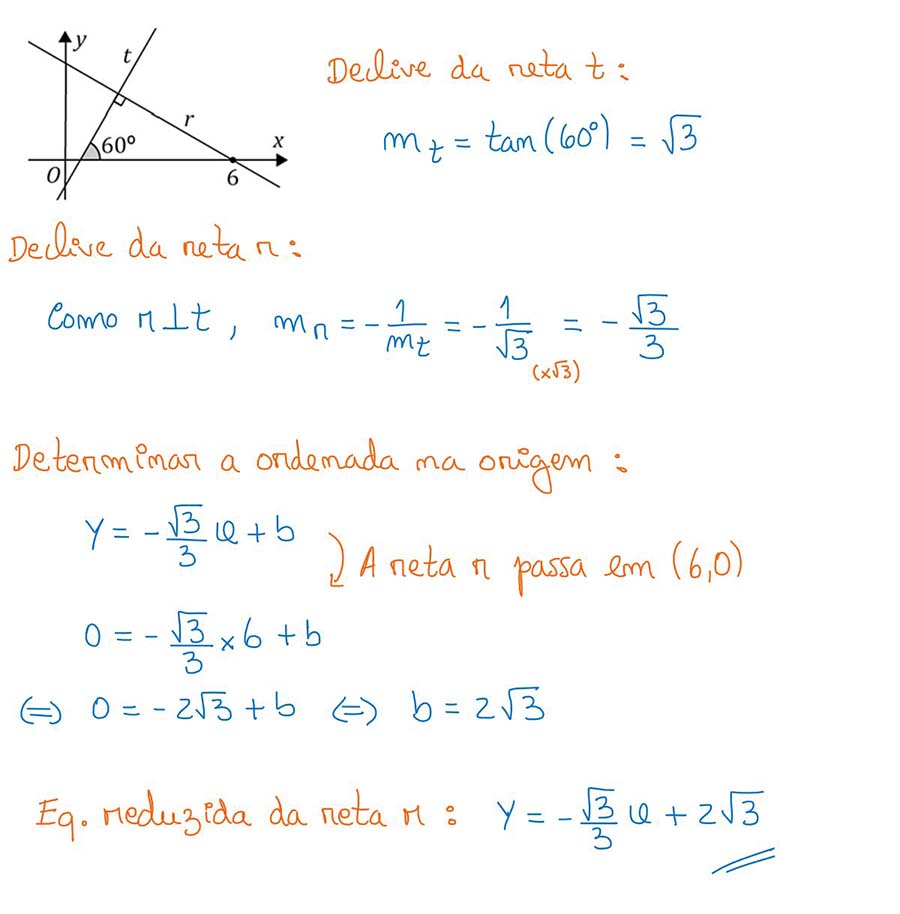 y
t
r
60º
x
O
6
Declive da reta t :
m_t = tan(60º) = √3
Declive da reta r :
Como r ⊥ t , m_r = - 1/m_t = - 1/√3 = - √3/3
(×√3)
Determinar a ordenada na origem :
y = - √3/3 x + b
A reta r passa em (6,0)
0 = - √3/3 × 6 + b
⇔ 0 = - 2√3 + b ⇔ b = 2√3
Eq. reduzida da reta r : y = - √3/3 x + 2√3